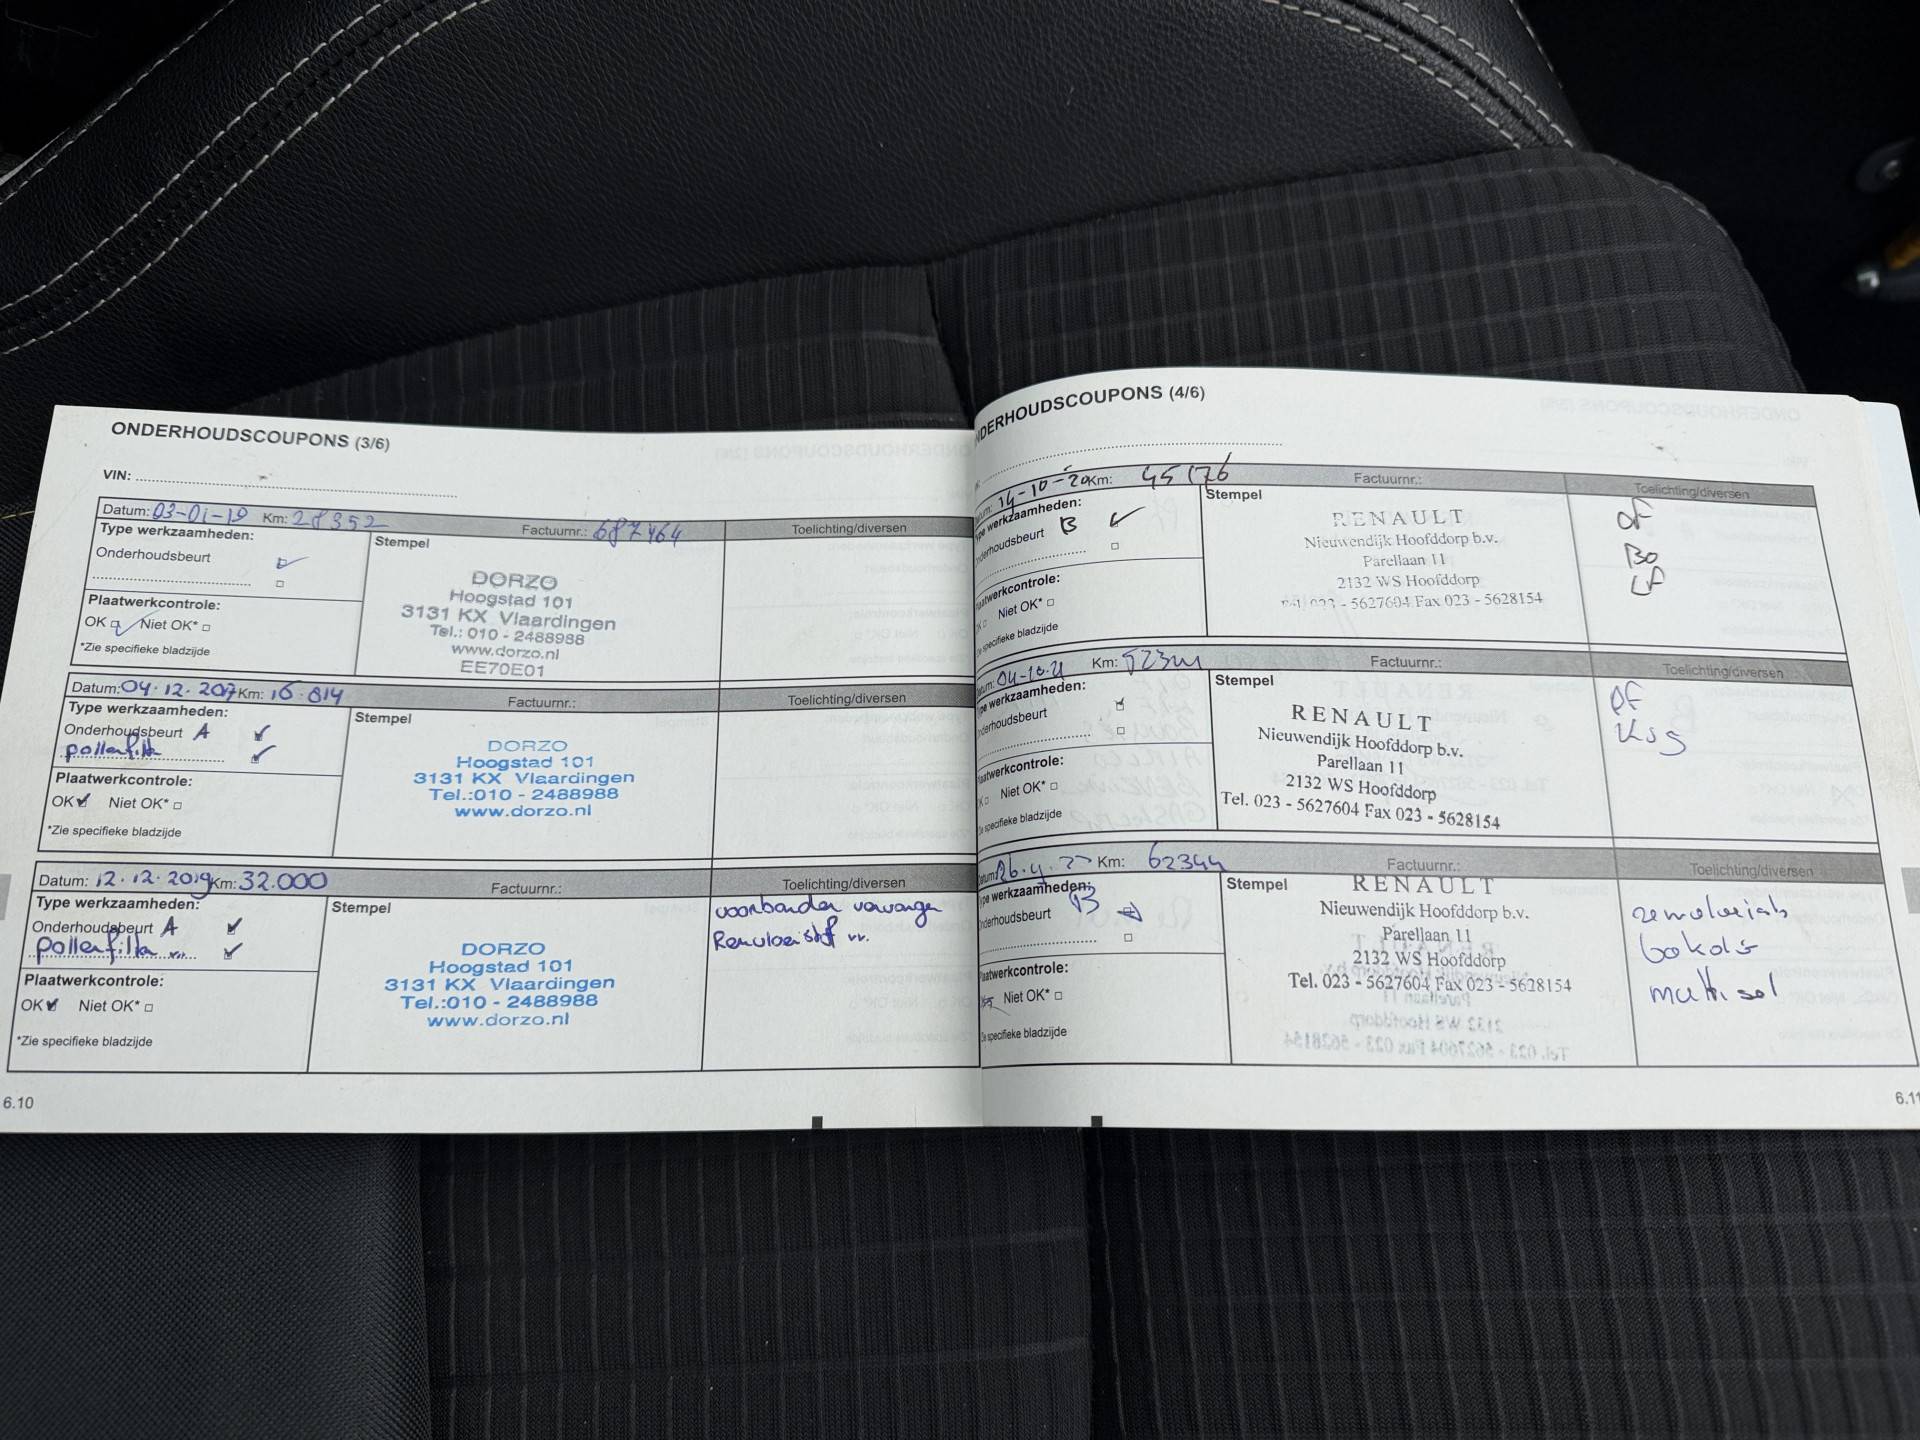 ONDERHOUDSCOUPONS (3/6)
VIN:
Datum: 03-01-19 Km: 28352 Factuurnr.: 687464 Toelichting/diversen
Type werkzaamheden:
Onderhoudsbeurt
Stempel
DORZO
Hoogstad 101
3131 KX Vlaardingen
Tel.: 010 - 2488988
www.dorzo.nl
EE70E01
Plaatwerkcontrole:
OK Niet OK*
*Zie specifieke bladzijde
Datum: 04.12.2017 Km: 16.814 Factuurnr.: Toelichting/diversen
Type werkzaamheden:
Onderhoudsbeurt A
pollenfilter
Stempel
DORZO
Hoogstad 101
3131 KX Vlaardingen
Tel.:010 - 2488988
www.dorzo.nl
Plaatwerkcontrole:
OK Niet OK*
*Zie specifieke bladzijde
Datum: 12.12.2019 Km: 32.000 Factuurnr.: Toelichting/diversen
Type werkzaamheden:
Onderhoudsbeurt A
pollenfilter vv.
Stempel
DORZO
Hoogstad 101
3131 KX Vlaardingen
Tel.:010 - 2488988
www.dorzo.nl
voorbanden vervangen
Remvloeistof vv.
Plaatwerkcontrole:
OK Niet OK*
*Zie specifieke bladzijde
6.10
NDERHOUDSCOUPONS (4/6)
14-10-20 Km: 45176 Factuurnr.: Toelichting/diversen
Type werkzaamheden:
Onderhoudsbeurt B
Stempel
RENAULT
Nieuwendijk Hoofddorp b.v.
Parellaan 11
2132 WS Hoofddorp
Tel. 023 - 5627604 Fax 023 - 5628154
OF
Bo
LF
Plaatwerkcontrole:
OK Niet OK*
Zie specifieke bladzijde
04-10-21 Km: Factuurnr.: Toelichting/diversen
Type werkzaamheden:
Onderhoudsbeurt
Stempel
RENAULT
Nieuwendijk Hoofddorp b.v.
Parellaan 11
2132 WS Hoofddorp
Tel. 023 - 5627604 Fax 023 - 5628154
OF
Plaatwerkcontrole:
OK Niet OK*
Zie specifieke bladzijde
Datum: Km: 62344 Factuurnr.: Toelichting/diversen
Type werkzaamheden:
Onderhoudsbeurt B
Stempel
RENAULT
Nieuwendijk Hoofddorp b.v.
Parellaan 11
2132 WS Hoofddorp
Tel. 023 - 5627604 Fax 023 - 5628154
Plaatwerkcontrole:
Niet OK*
Zie specifieke bladzijde
6.11